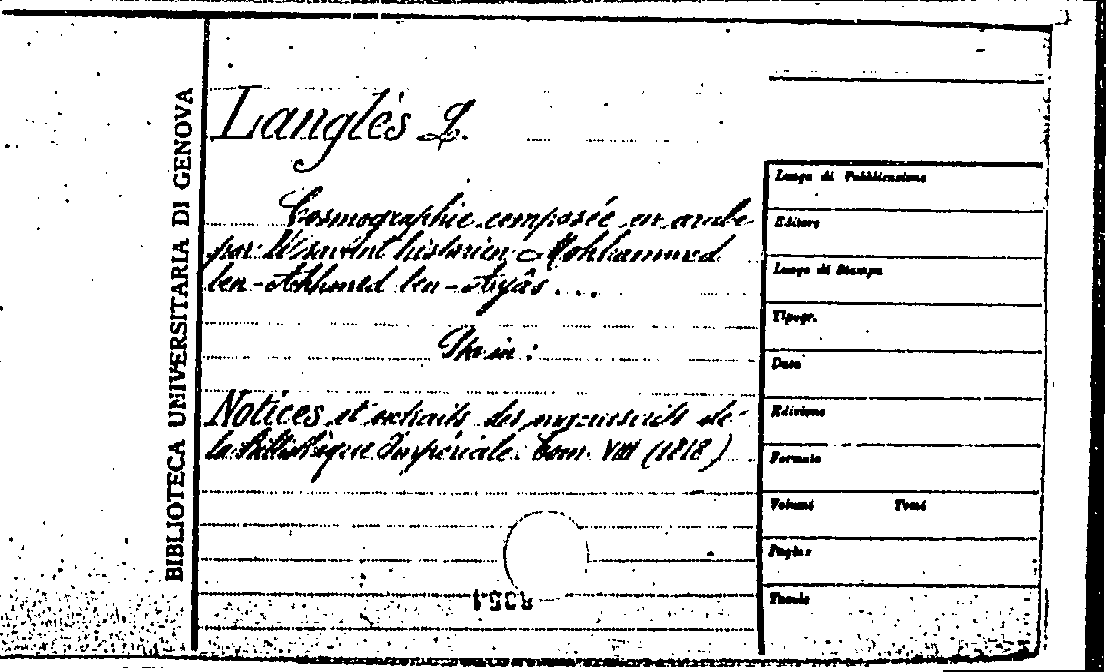 BIBLIOTECA UNIVERSITARIA DI GENOVA
Langlès L.
Cosmographie composée en arabe
par l'ésavant historien Mohhammed
ben-Ahhmed ben-Ayâs ...
Sta in :
Notices et extraits des manuscrits de
la bibliothèque Impériale. Tom. VIII (1818)
Luogo di Pubblicazione
Editore
Luogo di Stampa
Tipogr.
Data
Edizione
Formato
Volumi Tomi
Pagine